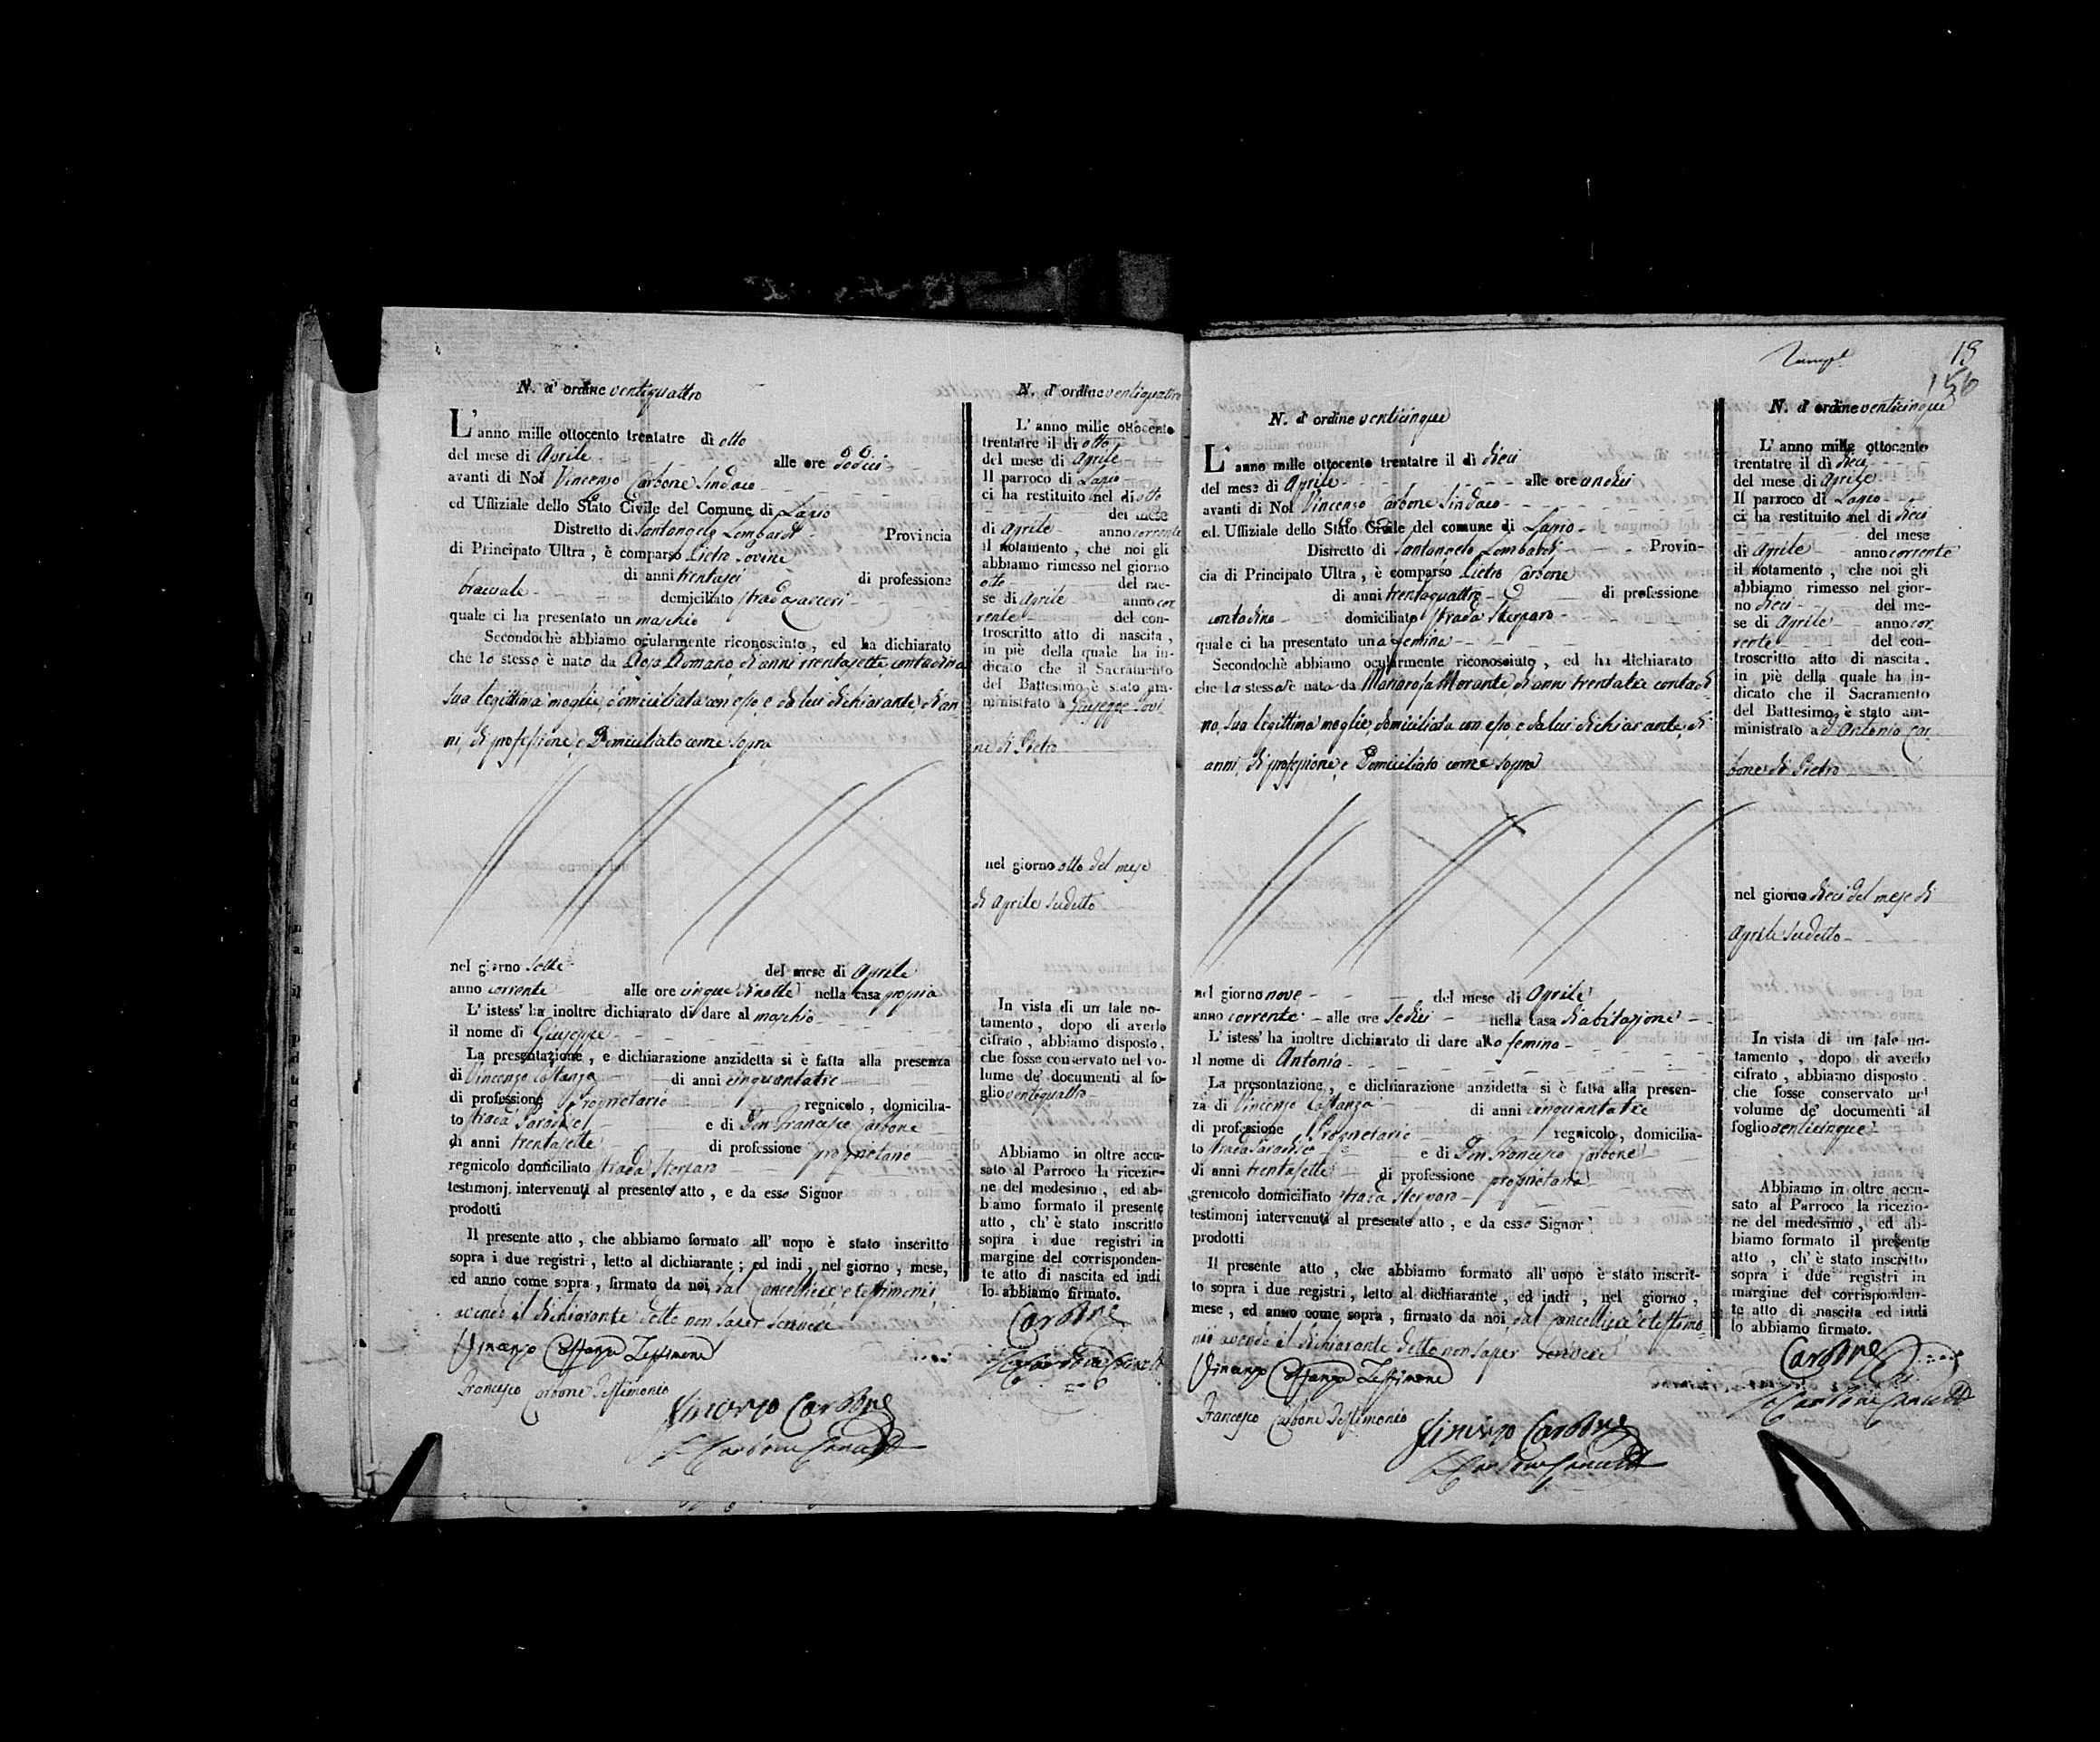 N. d' ordine ventiquattro
L' anno mille ottocento trentatre dì otto
del mese di Aprile alle ore dodici
avanti di Noi Vincenzo Carbone Sindaco
ed Uffiziale dello Stato Civile del Comune di Lapio
Distretto di Santangelo Lombardi Provincia
di Principato Ultra, è comparso Pietro Iovine
di anni trentasei di professione
bracciale domiciliato strada
quale ci ha presentato un maschio
Secondochè abbiamo ocularmente riconosciuto, ed ha dichiarato
che lo stesso è nato da Rosa Romano, di anni trentasette contadina
sua legittima moglie, domiciliata con esso, e da lui dichiarante, di an
ni, di professione, e Domiciliato come sopra
nel giorno sette del mese di Aprile
anno corrente alle ore cinque di notte nella casa propria
L' istess' ha inoltre dichiarato di dare al maschio
il nome di Giuseppe
La presentazione, e dichiarazione anzidetta si è fatta alla presenza
di Vincenzo Costanza di anni cinquantatre
di professione Proprietario regnicolo, domicilia-
to strada Paradiso e di Don Francesco Carbone
di anni trentasette di professione proprietario
regnicolo domiciliato strada Sterparo
testimonj intervenuti al presente atto, e da esso Signor
prodotti
Il presente atto, che abbiamo formato all' uopo è stato inscritto
sopra i due registri, letto al dichiarante; ed indi, nel giorno, mese,
ed anno come sopra, firmato da noi, dal Cancelliere e testimonii
avendo il dichiarante detto non saper scrivere
Vincenzo Costanza Testimone
Francesco Carbone Testimonio
Vincenzo Carbone
Carbone Cancell
N. d' ordine ventiquattro
L' anno mille ottocento
trentatre il dì otto
del mese di Aprile
Il parroco di Lapio
ci ha restituito nel dì otto
del mese
di Aprile anno corrente
il notamento, che noi gli
abbiamo rimesso nel giorno
otto del me-
se di Aprile anno cor
rente del con-
troscritto atto di nascita,
in piè della quale ha in-
dicato che il Sacramento
del Battesimo è stato am-
ministrato a Giuseppe Iovi
ne di Pietro
nel giorno otto del mese
di Aprile sudetto
In vista di un tale no-
tamento, dopo di averlo
cifrato, abbiamo disposto,
che fosse conservato nel vo-
lume de' documenti al fo-
glio ventiquattro
Abbiamo in oltre accu-
sato al Parroco la ricezio-
ne del medesimo, ed ab-
biamo formato il presente
atto, ch' è stato inscritto
sopra i due registri in
margine del corrisponden-
te atto di nascita ed indi
lo abbiamo firmato.
Carbone
Carbone Cancell
19
156
N. d' ordine venticinque
L' anno mille ottocento trentatre il dì dieci
del mese di Aprile alle ore undici
avanti di Noi Vincenzo Carbone Sindaco
ed Uffiziale dello Stato Civile del comune di Lapio
Distretto di Santangelo Lombardi Provin-
cia di Principato Ultra, è comparso Pietro Carbone
di anni trentaquattro di professione
contadino domiciliato strada Sterparo
quale ci ha presentato una femina
Secondochè abbiamo ocularmente riconosciuto, ed ha dichiarato
che la stessa è nata da Mariarosa Morante di anni trentatre contadi
na, sua legittima moglie, domiciliata con esso, e da lui dichiarante, di
anni, di professione, e Domiciliato come sopra
nel giorno nove del mese di Aprile
anno corrente alle ore sedici nella casa di abitazione
L' istess' ha inoltre dichiarato di dare alla femina
il nome di Antonia
La presentazione, e dichiarazione anzidetta si è fatta alla presen-
za di Vincenzo Costanza di anni cinquantatre
di professione Proprietario regnicolo, domicilia-
to strada Paradiso e di Don Francesco Carbone
di anni trentasette di professione proprietario
grenicolo domiciliato strada Sterparo
testimonj intervenuti al presente atto, e da esso Signor
prodotti
Il presente atto, che abbiamo formato all' uopo è stato inscrit-
to sopra i due registri, letto al dichiarante, ed indi, nel giorno,
mese, ed anno come sopra, firmato da noi, dal Cancelliere e testimo-
nii avendo il dichiarante detto non saper scrivere
Vincenzo Costanza Testimone
Francesco Carbone Testimonio
Vincenzo Carbone
Carbone Cancell
N. d' ordine venticinque
L' anno mille ottocento
trentatre il dì dieci
del mese di Aprile
Il parroco di Lapio
ci ha restituito nel dì dieci
del mese
di Aprile anno corrente
il notamento, che noi gli
abbiamo rimesso nel gior-
no dieci del me-
se di Aprile anno cor
rente del con-
troscritto atto di nascita,
in piè della quale ha in-
dicato che il Sacramento
del Battesimo è stato am-
ministrato a d'Antonia Car
bone di Pietro
nel giorno dieci del mese di
Aprile sudetto
In vista di un tale no-
tamento, dopo di averlo
cifrato, abbiamo disposto,
che fosse conservato nel
volume de' documenti al
foglio venticinque
Abbiamo in oltre accu-
sato al Parroco la ricezio-
ne del medesimo, ed ab-
biamo formato il presente
atto, ch' è stato inscritto
sopra i due registri in
margine del corrisponden-
te atto di nascita ed indi
lo abbiamo firmato.
Carbone
Carbone Cancell